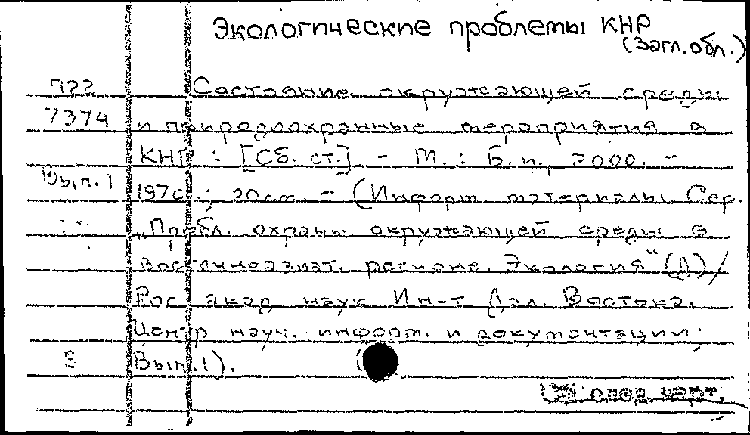 Экологические проблемы КНР
(Загл. обл.)
П22 Состояние окружающей среды
7374 и природоохранные мероприятия в
КНР : [Сб. ст.] - М. : Б. и., 2000. -
Вып. 1 197с.; 20см - (Информ. материалы. Сер.
"Пробл. охраны окружающей среды в
Восточноазиат. регионе. Экология" (Д) /
Рос. акад. наук. Ин-т Дал. Востока.
Центр науч. информ. и документации;
Вып. 1).